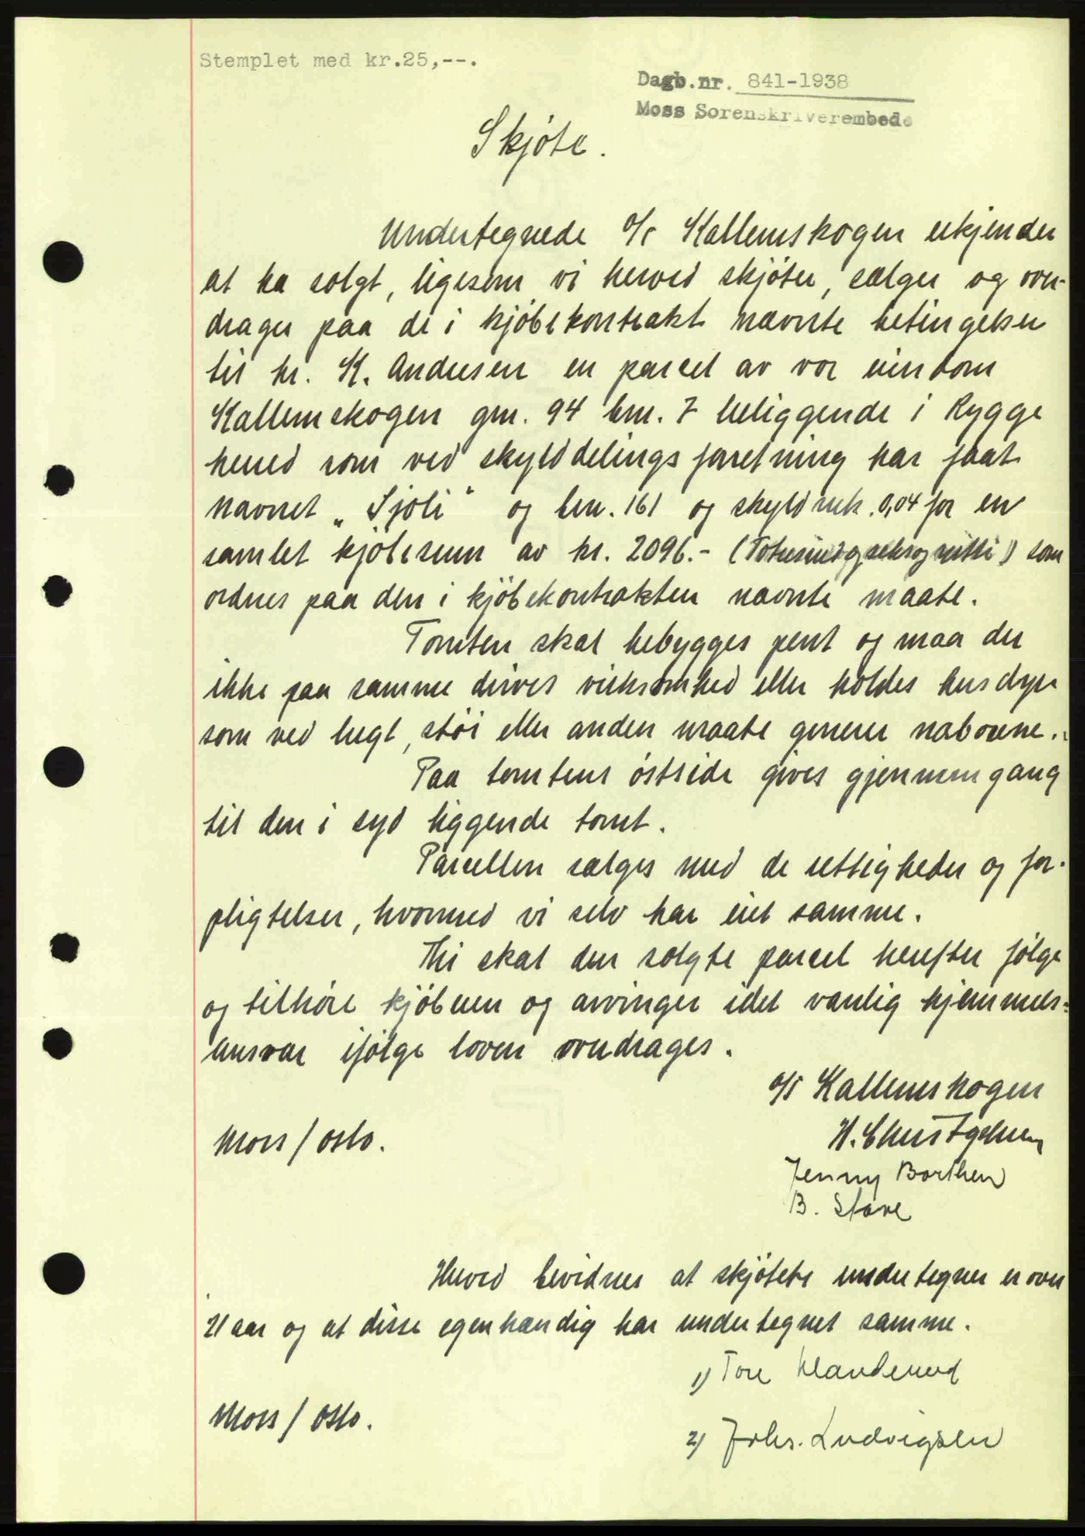 Stemplet med kr.25,--.
Dagb.nr. 841-1938
Moss Sorenskriverembede
Skjøte.
Undertegnede A/S Kallemskogen erkjender
at ha solgt, ligesom vi herved skjøter, sælger og over-
drager paa de i kjøbekontrakt nævnte betingelser
til hr. K. Andersen en parcel av vor eiendom
Kallemskogen gm. 94 bm. 7 beliggende i Rygge
herred som ved skylddelingsforretning har faat
navnet "Sjøli" og bm. 161 og skyld mrk. 0,04 for en
samlet kjøbesum av kr. 2096.- (Totusindogseksognitti) som
ordnes paa den i kjøbekontrakten nævnte maate.
Tomten skal bebygges pent og maa der
ikke paa samme drives virksomhed eller holdes husdyr
som ved lugt, støi eller anden maate generer naboerne.
Paa tomtens østside gives gjennemgang
til den i syd liggende tomt.
Parcellen sælges med de rettigheder og for-
pligtelser, hvormed vi selv har eiet samme.
Thi skal den solgte parcel herefter følge
og tilhøre kjøberen og arvinger idet vanlig hjemmels-
ansvar ifølge loven overdrages.
A/S Kallemskogen
Moss / Oslo.
H. Christgelsen
Jenny Borthen
B. Stave
Herved bevidnes at skjøtets undertegner er over
21 aar og at disse egenhændig har undertegnet samme.
1) Tore
Moss / Oslo.
2) Johs. Ludvigsen